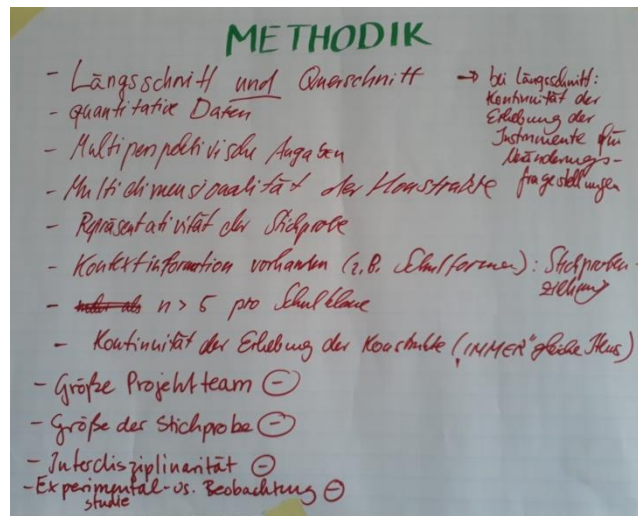 METHODIK
- Längsschnitt und Querschnitt → bei Längsschnitt:
Kontinuität der
Erhebung der
Instrumente für
Veränderungs-
fragestellungen
- quantitative Daten
- Multiperspektivische Angaben
- Multidimensionalität der Konstrukte
- Repräsentativität der Stichprobe
- Kontextinformation vorhanden (z.B. Schulformen): Stichproben-
ziehung
- n > 5 pro Schulklasse
- Kontinuität der Erhebung der Konstrukte („IMMER" gleiche Items)
- Größe Projektteam ⊖
- Größe der Stichprobe ⊖
- Interdisziplinarität ⊖
- Experimental- vs. Beobachtung ⊖
studie